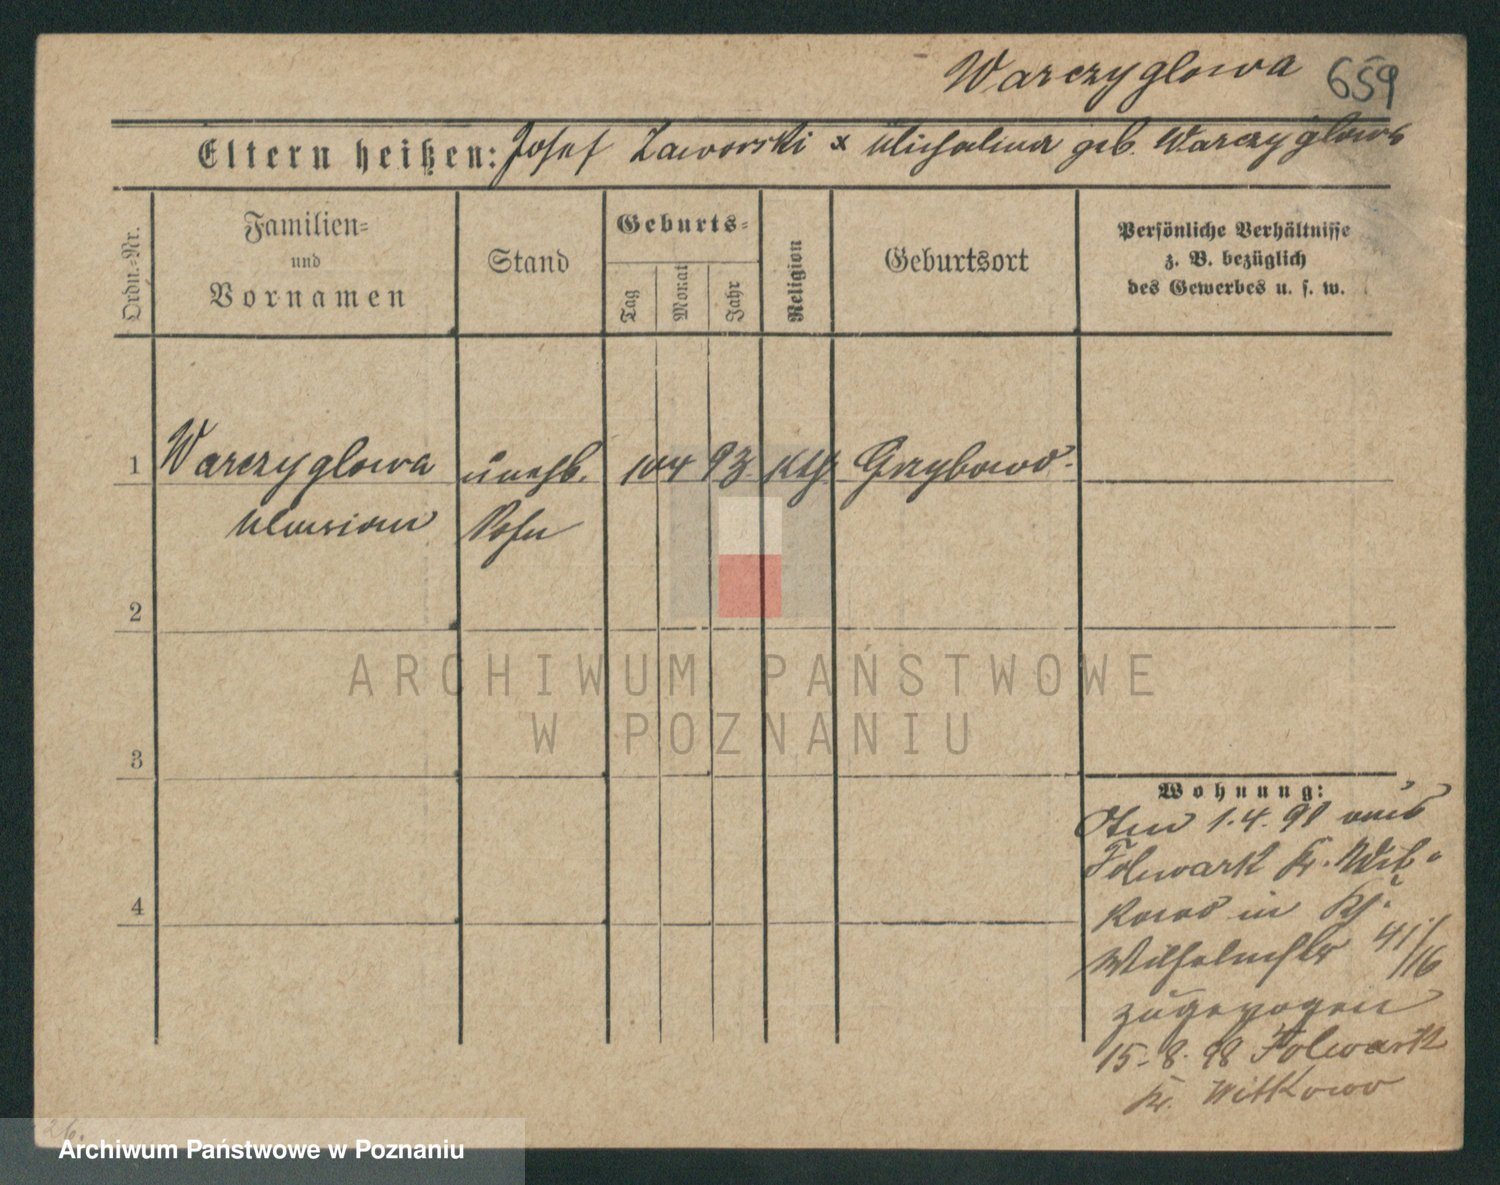 Warczyglowa 659
Eltern heißen: Josef Zaworski x Michalina geb. Warczyglowa
Ordn.-Nr.
Familien-
und
Vornamen
Stand
Geburts-
Tag
Monat
Jahr
Religion
Geburtsort
Persönliche Verhältnisse
z. B. bezüglich
des Gewerbes u. s. w.
1 Warczyglowa unehl. 10 4 93 kth Grzybowo.
Marian Sohn
2
3
4
Wohnung:
1.4.98 aus
Folwark Kr. Wit-
kowo in
Wilhelmstr 41/16
zugezogen
15.8.98 Folwark
Kr. Witkowo
ARCHIWUM PAŃSTWOWE
W POZNANIU
Archiwum Państwowe w Poznaniu